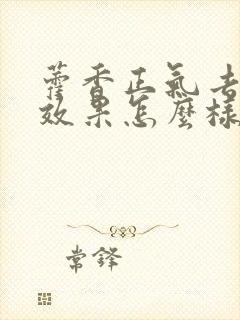 藿香正氣去
效果怎麼樣
常鋒